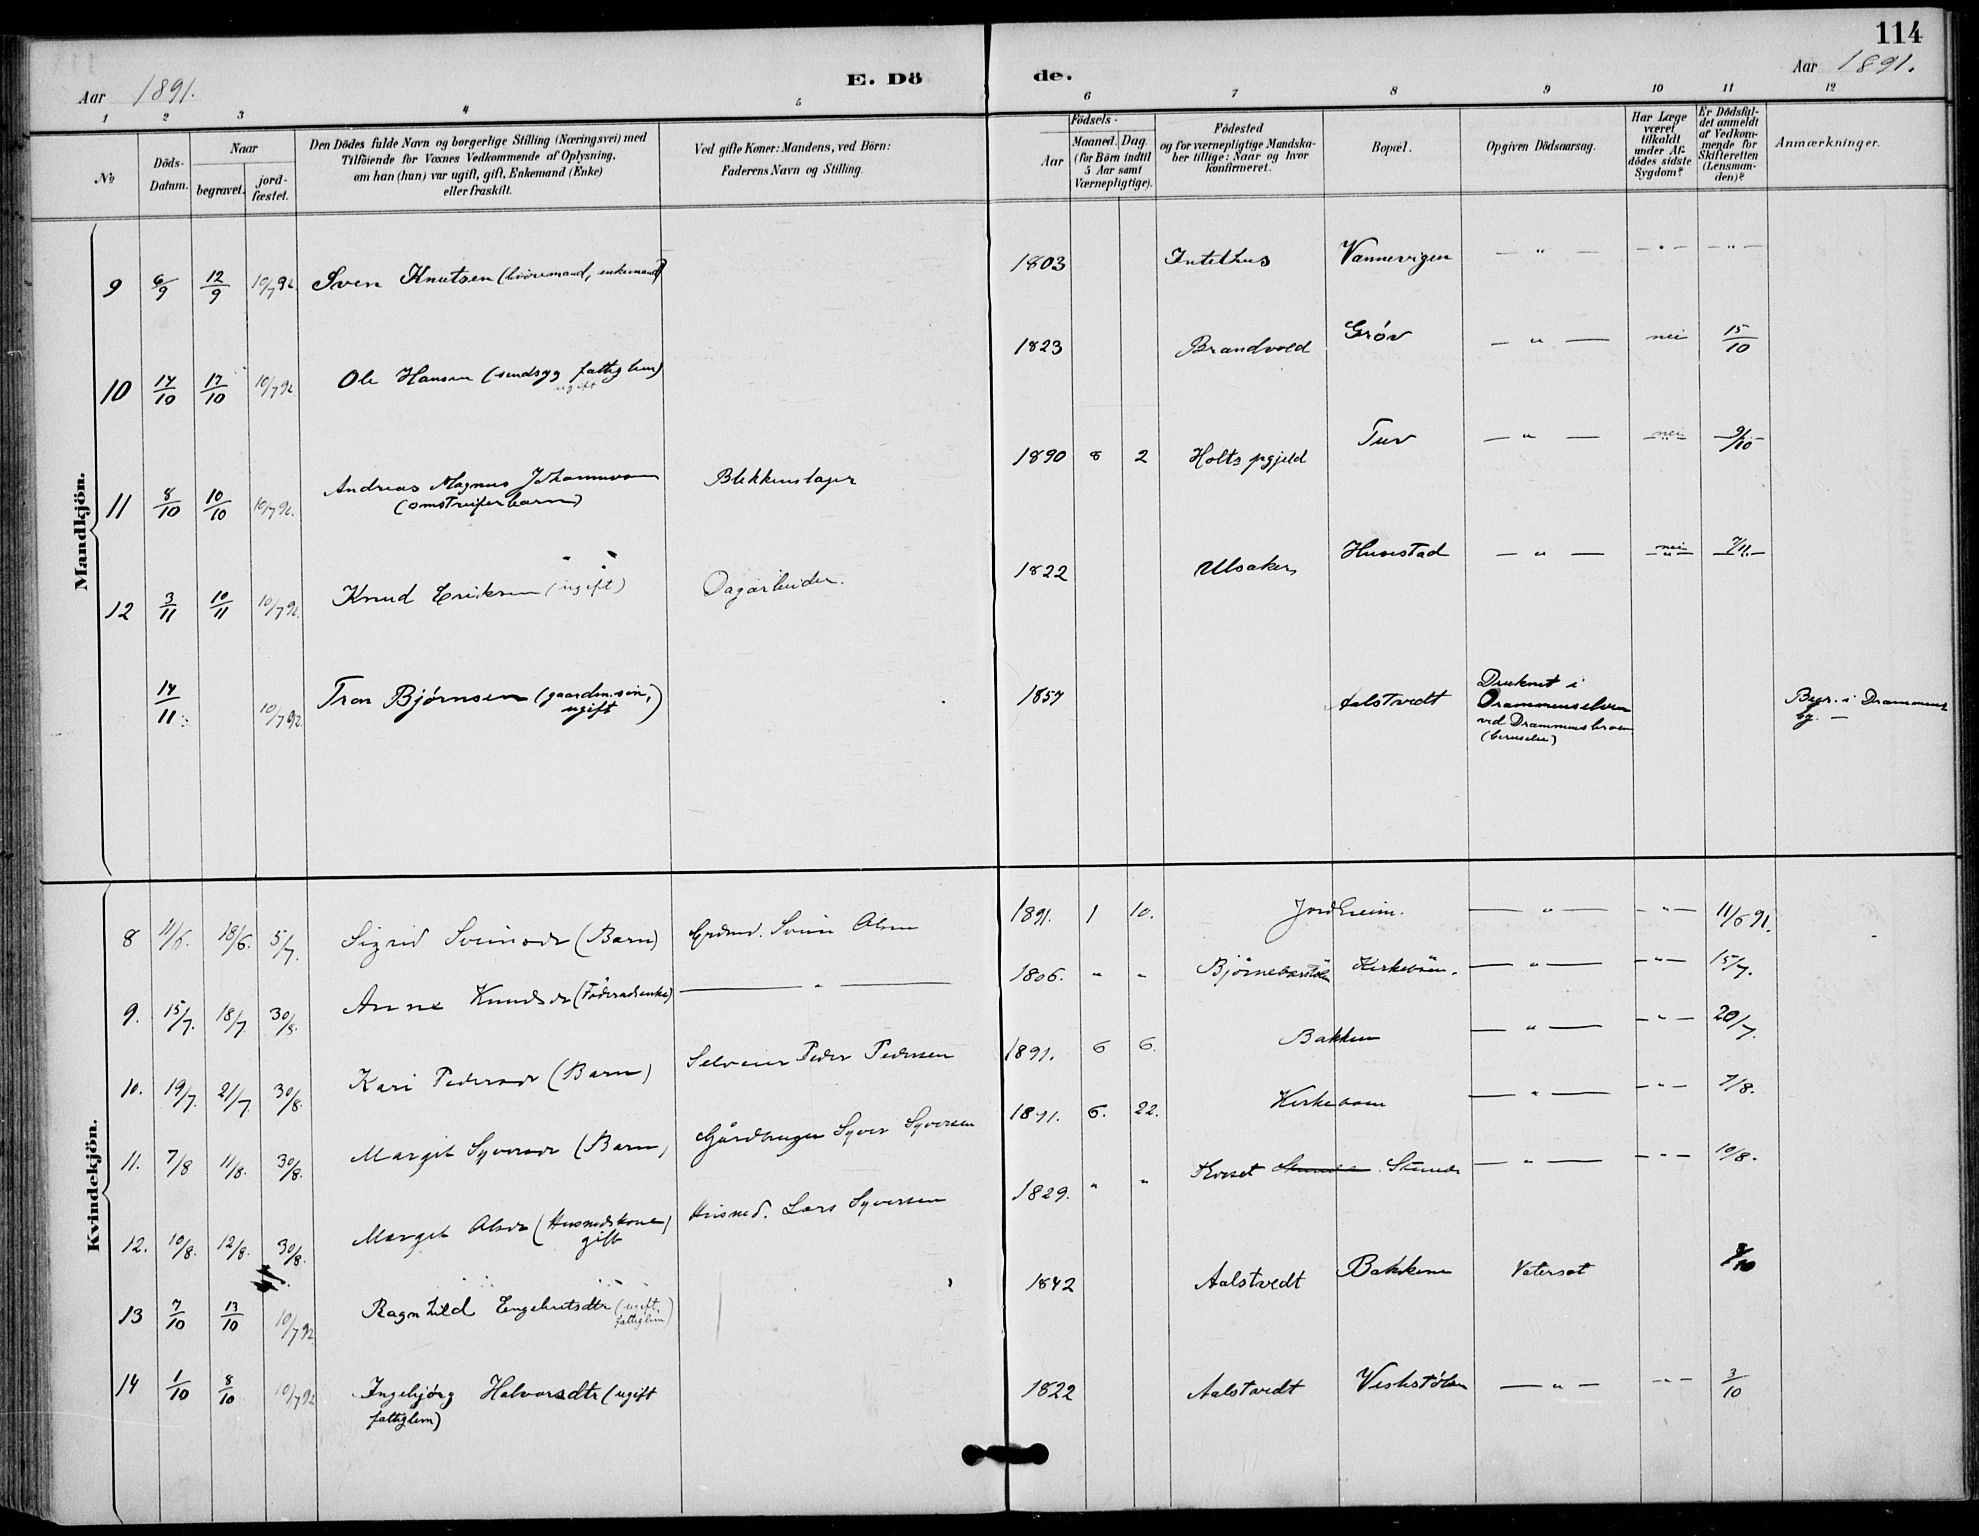 114
Aar 1891.
E. Dö de.
Aar 1891.
1 2 3 4 5 6 7 8 9 10 11 12
№
Döds-
Datum.
Naar
begravet.
jord-
fæstet.
Den Dödes fulde Navn og borgerlige Stilling (Næringsvei) med
Tilföiende for Voxnes Vedkommende af Oplysning,
om han (hun) var ugift, gift, Enkemand (Enke)
eller fraskilt.
Ved gifte Koner: Mandens, ved Börn:
Faderens Navn og Stilling.
Födsels-
Aar
Maaned. Dag.
(for Börn indtil
5 Aar samt
Værnepligtige).
Födested
og for værnepligtige Mandska-
ber tillige: Naar og hvor
konfirmeret.
Bopæl.
Opgiven Dödsaarsag.
Har Læge
været
tilkaldt
under Af-
dödes sidste
Sygdom?
Er Dödsfal-
det anmeldt
af Vedkom-
mende for
Skifteretten
(Lensman-
den)?
Anmærkninger.
Mandkjön.
9 6/9 12/9 10/7 92 Sven Knutsen (enkemand) 1803 Intelhus Vannevigen — " — — " — — " —
10 14/10 17/10 10/7 92 Ole Hansen (sindsyg fattiglem) 1823 Brandvold Grøv — " — nei 15/10
ugift
11 8/10 10/10 10/7 92. Andreas Magnus Johannessen Blikkenslager 1890 8 2 Holts pgjeld Tuv — " — nei 9/10
(omstreiferbarn)
12 3/11 10/11 10/7 92. Knud Eriksen (ugift) Dagarbeider. 1822 Ulsaker Husestad — " — nei 7/11.
14/11 10/7 92 Tron Bjørnsen (gaardm. søn, 1857 Aalstvedt Druknet i
ugift) Drammenselven
ved Drammensbroen
Begr. i Drammens
by. —
Kvindekjön.
8 11/6. 18/6. 5/7. Sigrid Svensdr (Barn) Svein Olsen 1891. 1 10. Jordheim. — " — — " — 11/6 91.
9. 15/7. 18/7 30/8. Anne Knudsdr (Føderaadsenke) — " — 1806. " " Kirkebøen. — " — — " — 15/7.
10. 19/7. 21/7 30/8. Kari Pedersdr (Barn) Selveier Peder Pedersen 1891. 6 6. Bakken — " — — " — 20/7.
11. 7/8 11/8. 30/8. Margit Syversdr (Barn) Gårdbruger Syver Syversen 1891. 6. 22. Kirkeboen — " — — " — 7/8.
12. 10/8. 12/8. 30/8. Margit Olsdr (Husmdskone) Husmd. Lars Syversen 1829. " " — " — — " — 10/8.
gift
13 7/10 13/10 10/7 92 Ragnhild Engebretsdtr (ugift, 1842 Aalstvedt Bakkene Vatersot 8/10
fattiglem)
14 1/10 8/10 10/7 92 Ingebjørg Halvorsdtr (ugift 1822 Aalstvedt — " — — " — 3/10
fattiglem)